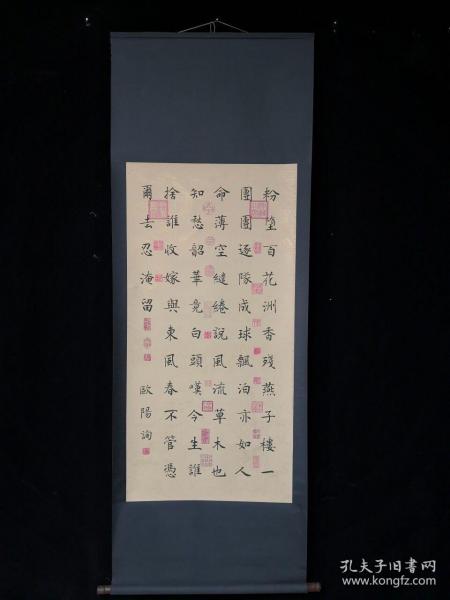 粉墮百花洲香殘燕子樓一
團團逐隊成球飄泊亦如人
命薄空繾綣說風流草木也
知愁韶華竟白頭嘆今生誰
捨誰收嫁與東風春不管憑
爾去忍淹留 歐陽詢
孔夫子旧书网
www.kongfz.com